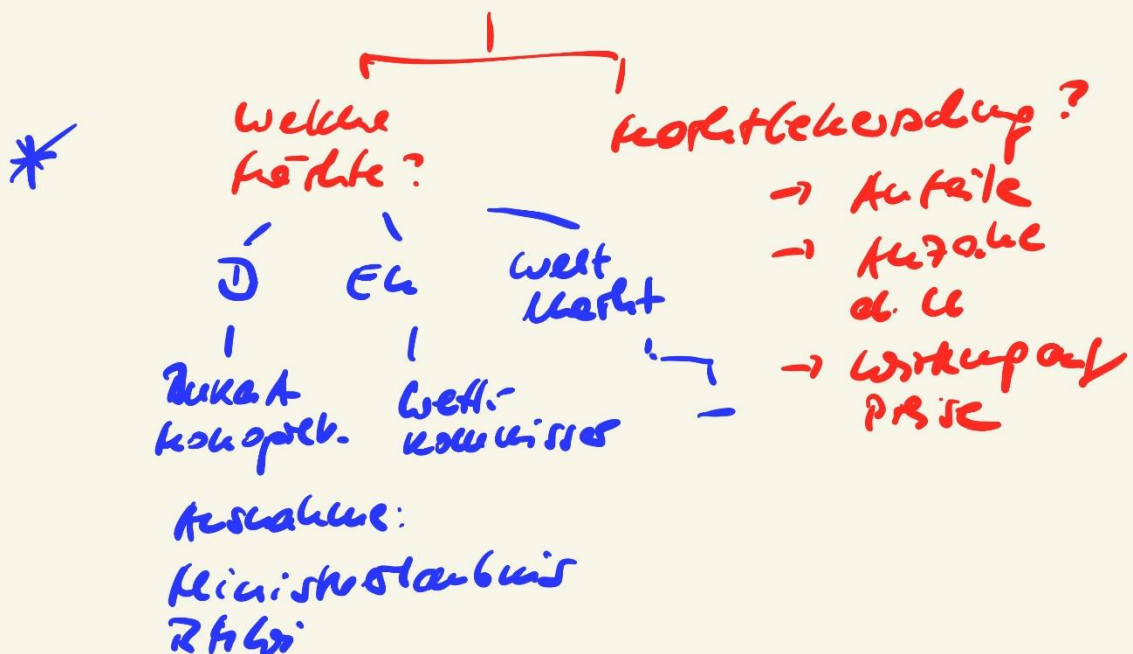 Welche
Märkte?
D
EU
Welt
Markt
BuKaA
Monopolk.
Wettb.
kommissar
Ausnahme:
Ministererlaubnis
BMWi
Marktbeherrschung?
→ Anteile
→ Anzahl
d. U
→ Wirkung auf
Preise